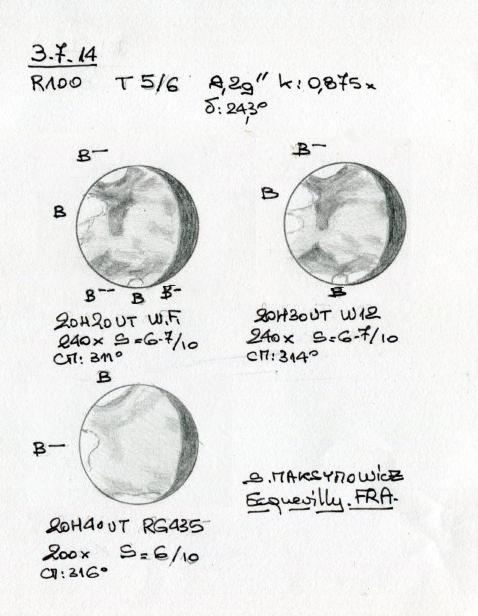 3.7.14
R100 T 5/6 A,2g" k: 0,875x
δ: 24,3°
B- B-
B B
B-- B B- B
20H20UT W.F. 20H30UT W12
240x S=6-7/10 240x S=6-7/10
СП: 311° СП: 314°
B
B-
S. MAKSYMOWICZ
Ecquevilly. FRA.
20H40UT RG435
200x S=6/10
СП: 316°